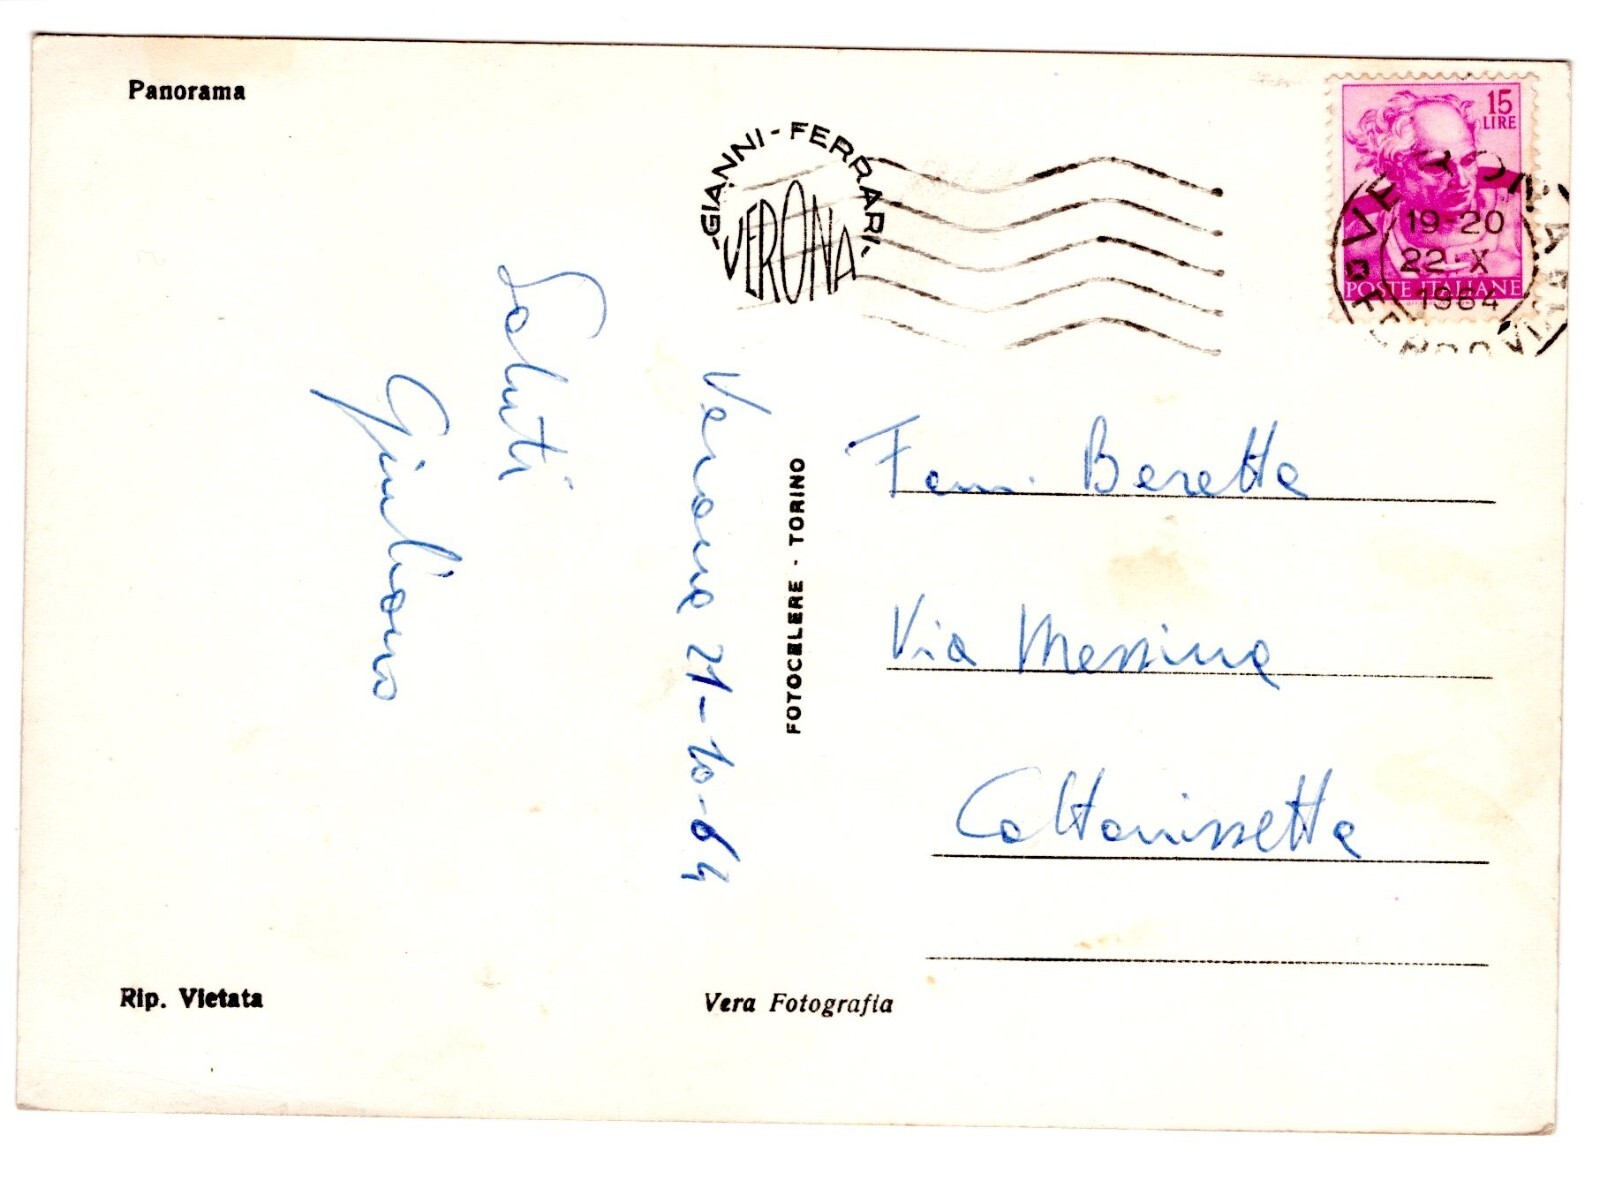 Panorama
GIANNI-FERRARI-
VERONA
15
LIRE
POSTE ITALIANE
VERONA
19-20
22·X
1964
FERROVIA
Saluti
Giuliano
Verona 21-10-64
FOTOCELERE - TORINO
Fam. Beretta
Via Messina
Caltanissetta
Rip. Vietata
Vera Fotografia